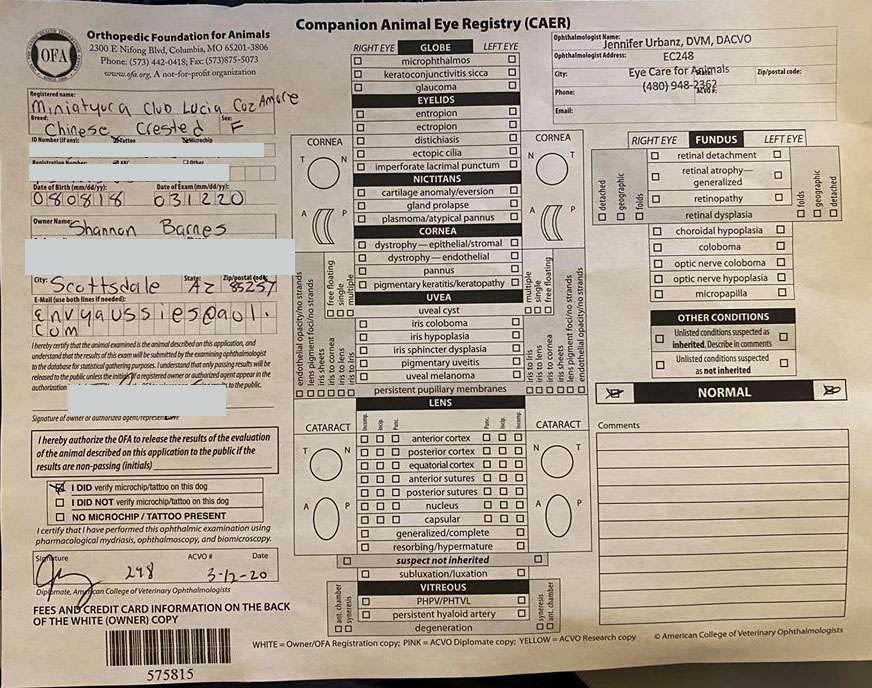 Companion Animal Eye Registry (CAER)
OFA
Orthopedic Foundation for Animals
2300 E Nifong Blvd, Columbia, MO 65201-3806
Phone: (573) 442-0418; Fax: (573)875-5073
www.ofa.org. A not-for-profit organization
Registered name:
Miniatyura Club Lucia Coz Amore
Breed: Sex:
Chinese Crested F
ID Number (if any): Tattoo Microchip
Registration Number: Other
Date of Birth (mm/dd/yy): Date of Exam (mm/dd/yy):
080818 031220
Owner Name:
Shannon Barnes
City: State: Zip/postal code:
Scottsdale AZ 85257
E-Mail (use both lines if needed):
envyaussies@aol.
com
I hereby certify that the animal examined is the animal described on this application, and
understand that the results of this exam will be submitted by the examining ophthalmologist
to the database for statistical gathering purposes. I understand that only passing results will be
released to the public unless the initials of a registered owner or authorized agent appear in the
authorization results to the public.
Signature of owner or authorized agent/representative
I hereby authorize the OFA to release the results of the evaluation
of the animal described on this application to the public if the
results are non-passing (initials)
I DID verify microchip/tattoo on this dog
I DID NOT verify microchip/tattoo on this dog
NO MICROCHIP / TATTOO PRESENT
I certify that I have performed this ophthalmic examination using
pharmacological mydriasis, ophthalmoscopy, and biomicroscopy.
Signature ACVO # Date
248 3-12-20
Diplomate, American College of Veterinary Ophthalmologists
FEES AND CREDIT CARD INFORMATION ON THE BACK
OF THE WHITE (OWNER) COPY
575815
RIGHT EYE GLOBE LEFT EYE
microphthalmos
keratoconjunctivitis sicca
glaucoma
EYELIDS
entropion
ectropion
distichiasis
ectopic cilia
imperforate lacrimal punctum
NICTITANS
cartilage anomaly/eversion
gland prolapse
plasmoma/atypical pannus
CORNEA
dystrophy—epithelial/stromal
dystrophy—endothelial
pannus
pigmentary keratitis/keratopathy
UVEA
uveal cyst
iris coloboma
iris hypoplasia
iris sphincter dysplasia
pigmentary uveitis
uveal melanoma
persistent pupillary membranes
LENS
Incomp. Incip. Punc. Punc. Incip. Incomp.
anterior cortex
posterior cortex
equatorial cortex
anterior sutures
posterior sutures
nucleus
capsular
generalized/complete
resorbing/hypermature
suspect not inherited
subluxation/luxation
VITREOUS
PHPV/PHTVL
persistent hyaloid artery
degeneration
CORNEA
T N
A P
free floating
single
multiple
endothelial opacity/no strands
lens pigment foci/no strands
iris sheets
iris to cornea
iris to lens
iris to iris
CATARACT
T N
A P
ant. chamber
syneresis
CORNEA
N T
A P
multiple
single
free floating
iris to iris
iris to lens
iris to cornea
iris sheets
lens pigment foci/no strands
endothelial opacity/no strands
CATARACT
N T
A P
syneresis
ant. chamber
Ophthalmologist Name:
Jennifer Urbanz, DVM, DACVO
Ophthalmologist Address:
EC248
City: Zip/postal code:
Eye Care for Animals
Phone: ACVO #:
(480) 948-2362
Email:
RIGHT EYE FUNDUS LEFT EYE
retinal detachment
retinal atrophy—
generalized
retinopathy
retinal dysplasia
detached
geographic
folds
folds
geographic
detached
choroidal hypoplasia
coloboma
optic nerve coloboma
optic nerve hypoplasia
micropapilla
OTHER CONDITIONS
Unlisted conditions suspected as
inherited. Describe in comments
Unlisted conditions suspected
as not inherited
NORMAL
Comments
WHITE = Owner/OFA Registration copy; PINK = ACVO Diplomate copy; YELLOW = ACVO Research copy
© American College of Veterinary Ophthalmologists